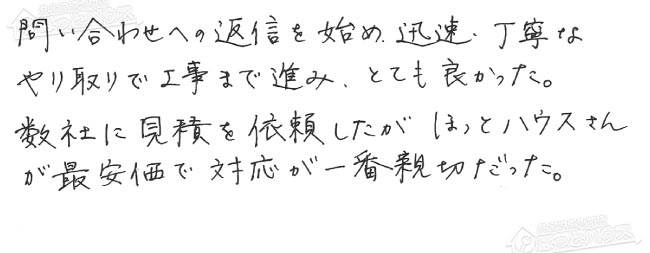 問い合わせへの返信を始め、迅速・丁寧な
やり取りで工事まで進み、とても良かった。
数社に見積を依頼したが ほっとハウスさん
が最安価で対応が一番親切だった。
ほっとハウス